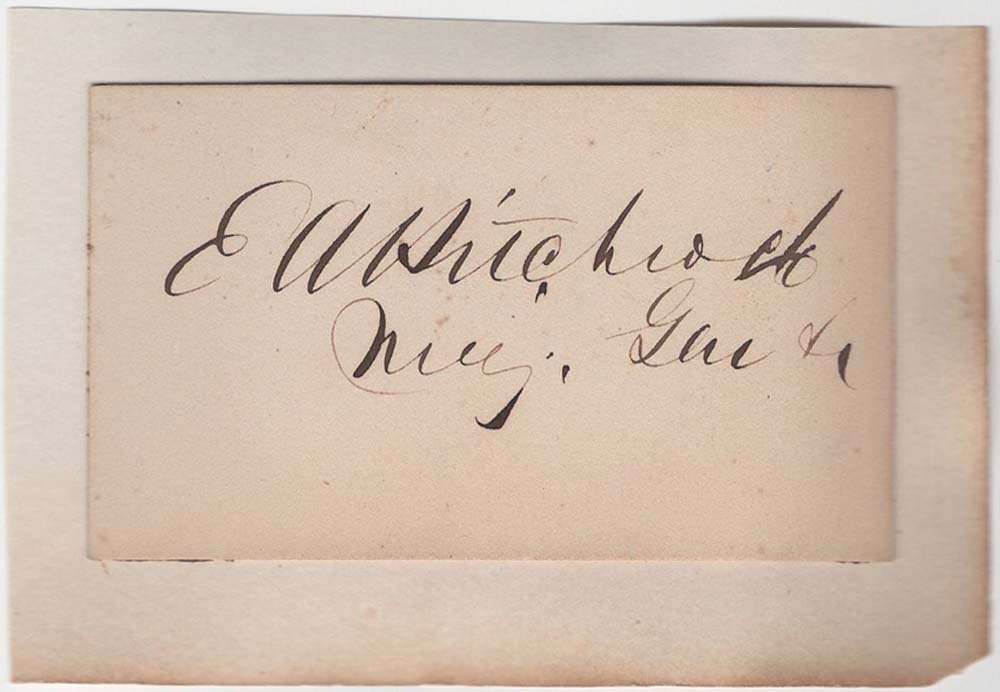 E A Hitchcock
Maj. Gen &c